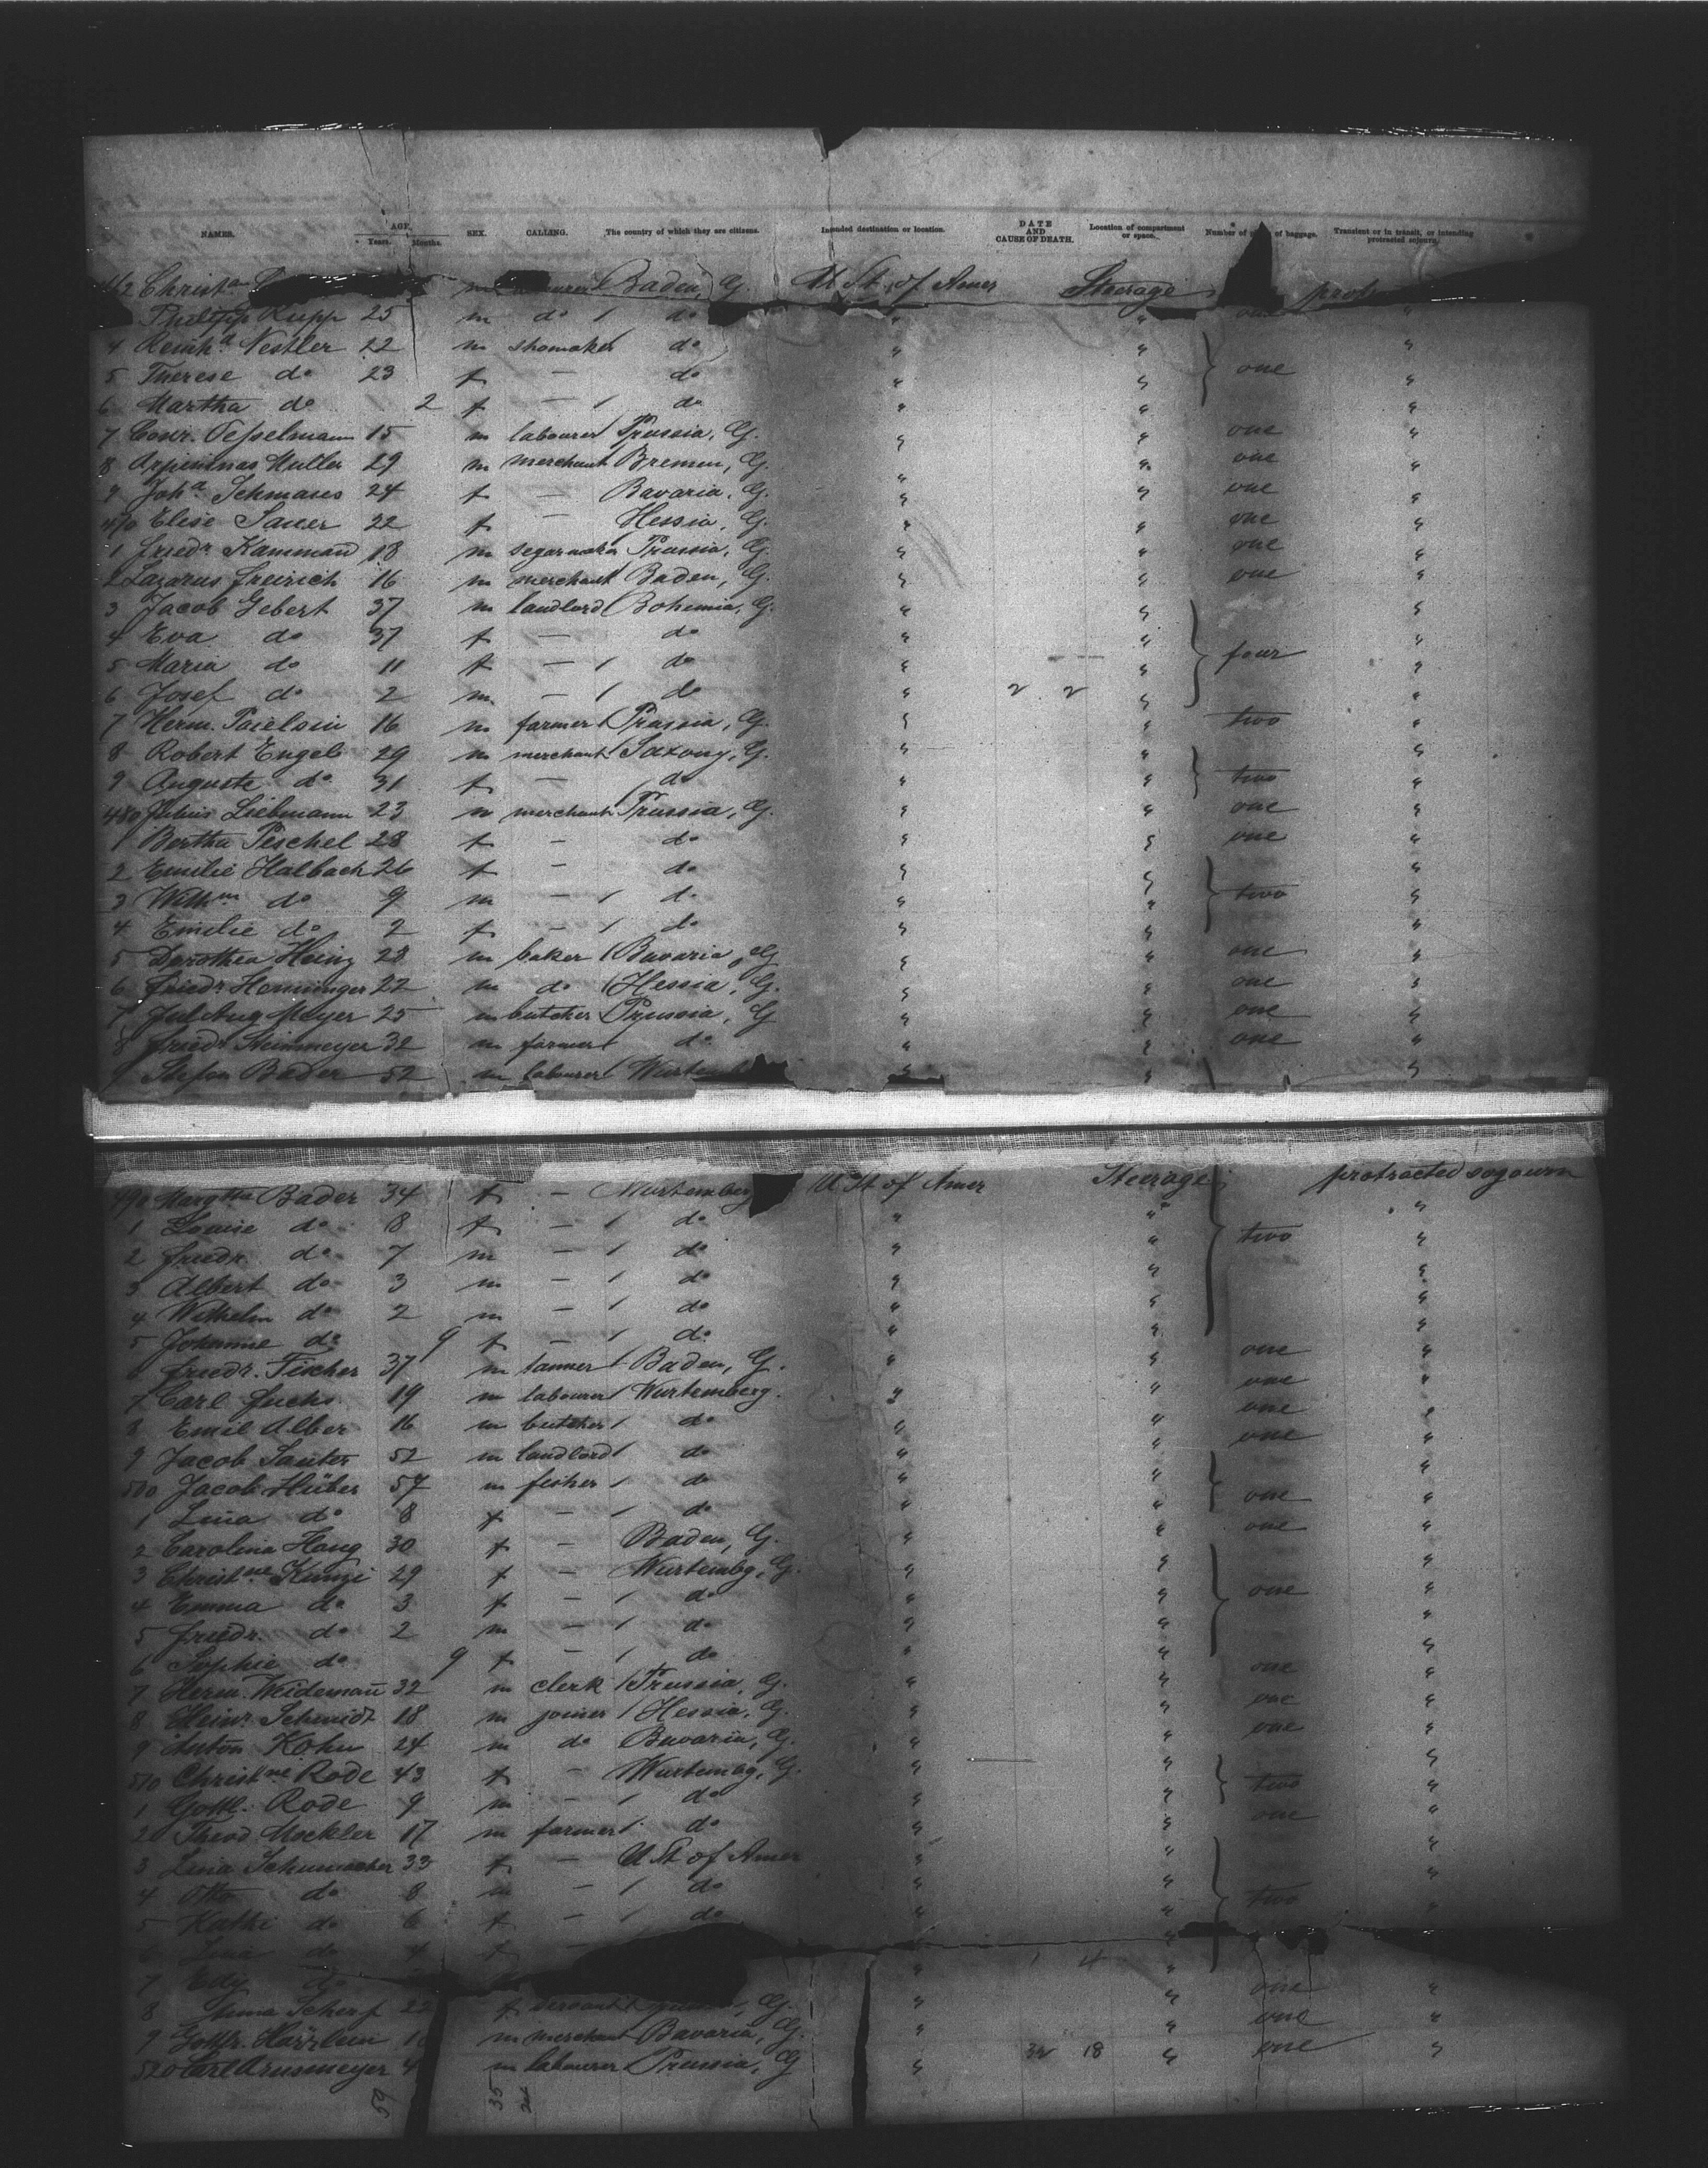 NAMES. AGE. Years. Months. SEX. CALLING. The country of which they are citizens. Intended destination or location. DATE AND CAUSE OF DEATH. Location of compartment or space. Number of of baggage. Transient or in transit, or intending protracted sojourn.
2 Christn m Baden, G. U St. of Amer Steerage
Philipp Rupp 25 m do / do " " one "
4 Reinhd Nestler 22 m shomaker do " " "
5 Therese do 23 f — do " " one "
6 Martha do 2 f — / do " " "
7 Conr. Tesselmann 15 m labourer Prussia, G. " " one "
8 Muller 29 m merchant Bremen, G. " " one "
9 Joha Schmaus 24 f — Bavaria, G. " " one "
470 Elise Sauer 22 f Hessia, G. " " one "
1 Friedr Kammann 18 m segarmaker Prussia, G. " " one "
2 Lazarus Freirich 16 m merchant Baden, G. " " one "
3 Jacob Gebert 37 m landlord Bohemia, G. " " "
4 Eva do 37 f — do " " "
5 Maria do 11 f — / do " " four "
6 Josef do 2 m — / do " 2 2 " "
7 Herm. 16 m farmer Prussia, G. " " two "
8 Robert Engel 29 m merchant Saxony, G. " " "
9 Auguste do 31 f — do " " two "
480 Julius Liebmann 23 m merchant Prussia, G. " " one "
1 Bertha Peschel 28 f — do " " one "
2 Emilie Halbach 26 f — do " " "
3 Wilhm do 9 m — / do " " two "
4 Emilie do 2 f — / do " " "
5 Dorothea Heinz 28 m baker / Bavaria, G " " one "
6 Friedr Henninger 22 m do / Hessia, G. " " one "
7 Jul. Aug. Meyer 25 m butcher Prussia, G " " one "
8 Friedr Steinmeyer 32 m farmer / do " " one "
9 Stefan Bader 52 m labourer / " " "
490 Margtha Bader 34 f — Wurtemberg U St of Amer Steerage protracted sogourn
1 Louise do 8 f — / do " " "
2 Friedr. do 7 m — / do " " two "
3 Albert do 3 m — / do " " "
4 Wilhelm do 2 m — / do " " "
5 Johanne do 9 f — / do " " "
6 Friedr. Fischer 37 m tanner / Baden, G. " " one "
7 Carl Fuchs 19 m labourer / Wurtemberg. " " one "
8 Emil Alber 16 m butcher / do " " one "
9 Jacob Sauter 52 m landlord / do " " one "
500 Jacob Huber 57 m fisher / do " " "
1 Lina do 8 f — / do " " one "
2 Carolina Haug 30 f — Baden, G. " " one "
3 Christne Kunzi 29 f — Wurtembg, G. " " "
4 Emma do 3 f — / do " " one "
5 Friedr. do 2 m — / do " " "
6 Sophie do 9 f — / do " " "
7 Herm. Weidemann 32 m clerk / Prussia, G. " " one "
8 Heinr. Schmidt 18 m joiner / Hessia, G. " " one "
9 Anton Kohn 24 m do Bavaria, G. " " one "
510 Christne Rode 43 f — Wurtembg, G. " " "
1 Gottl. Rode 9 m — / do " " two "
2 Theod Mockler 17 m farmer / do " " one "
3 Lina Schumacher 33 f — U St of Amer " " "
4 Otto do 8 m — / do " " "
5 Kathi do 6 f — / do " " two "
6 Lina do 4 f " " "
7 do " 1 4 "
8 Anna Scherf 22 f servant G. " " one "
9 Gottfr. m merchant Bavaria, G. " " one "
520 Carl Arnsmeyer 4 m labourer Prussia, G " 32 18 " one "
59 35 24